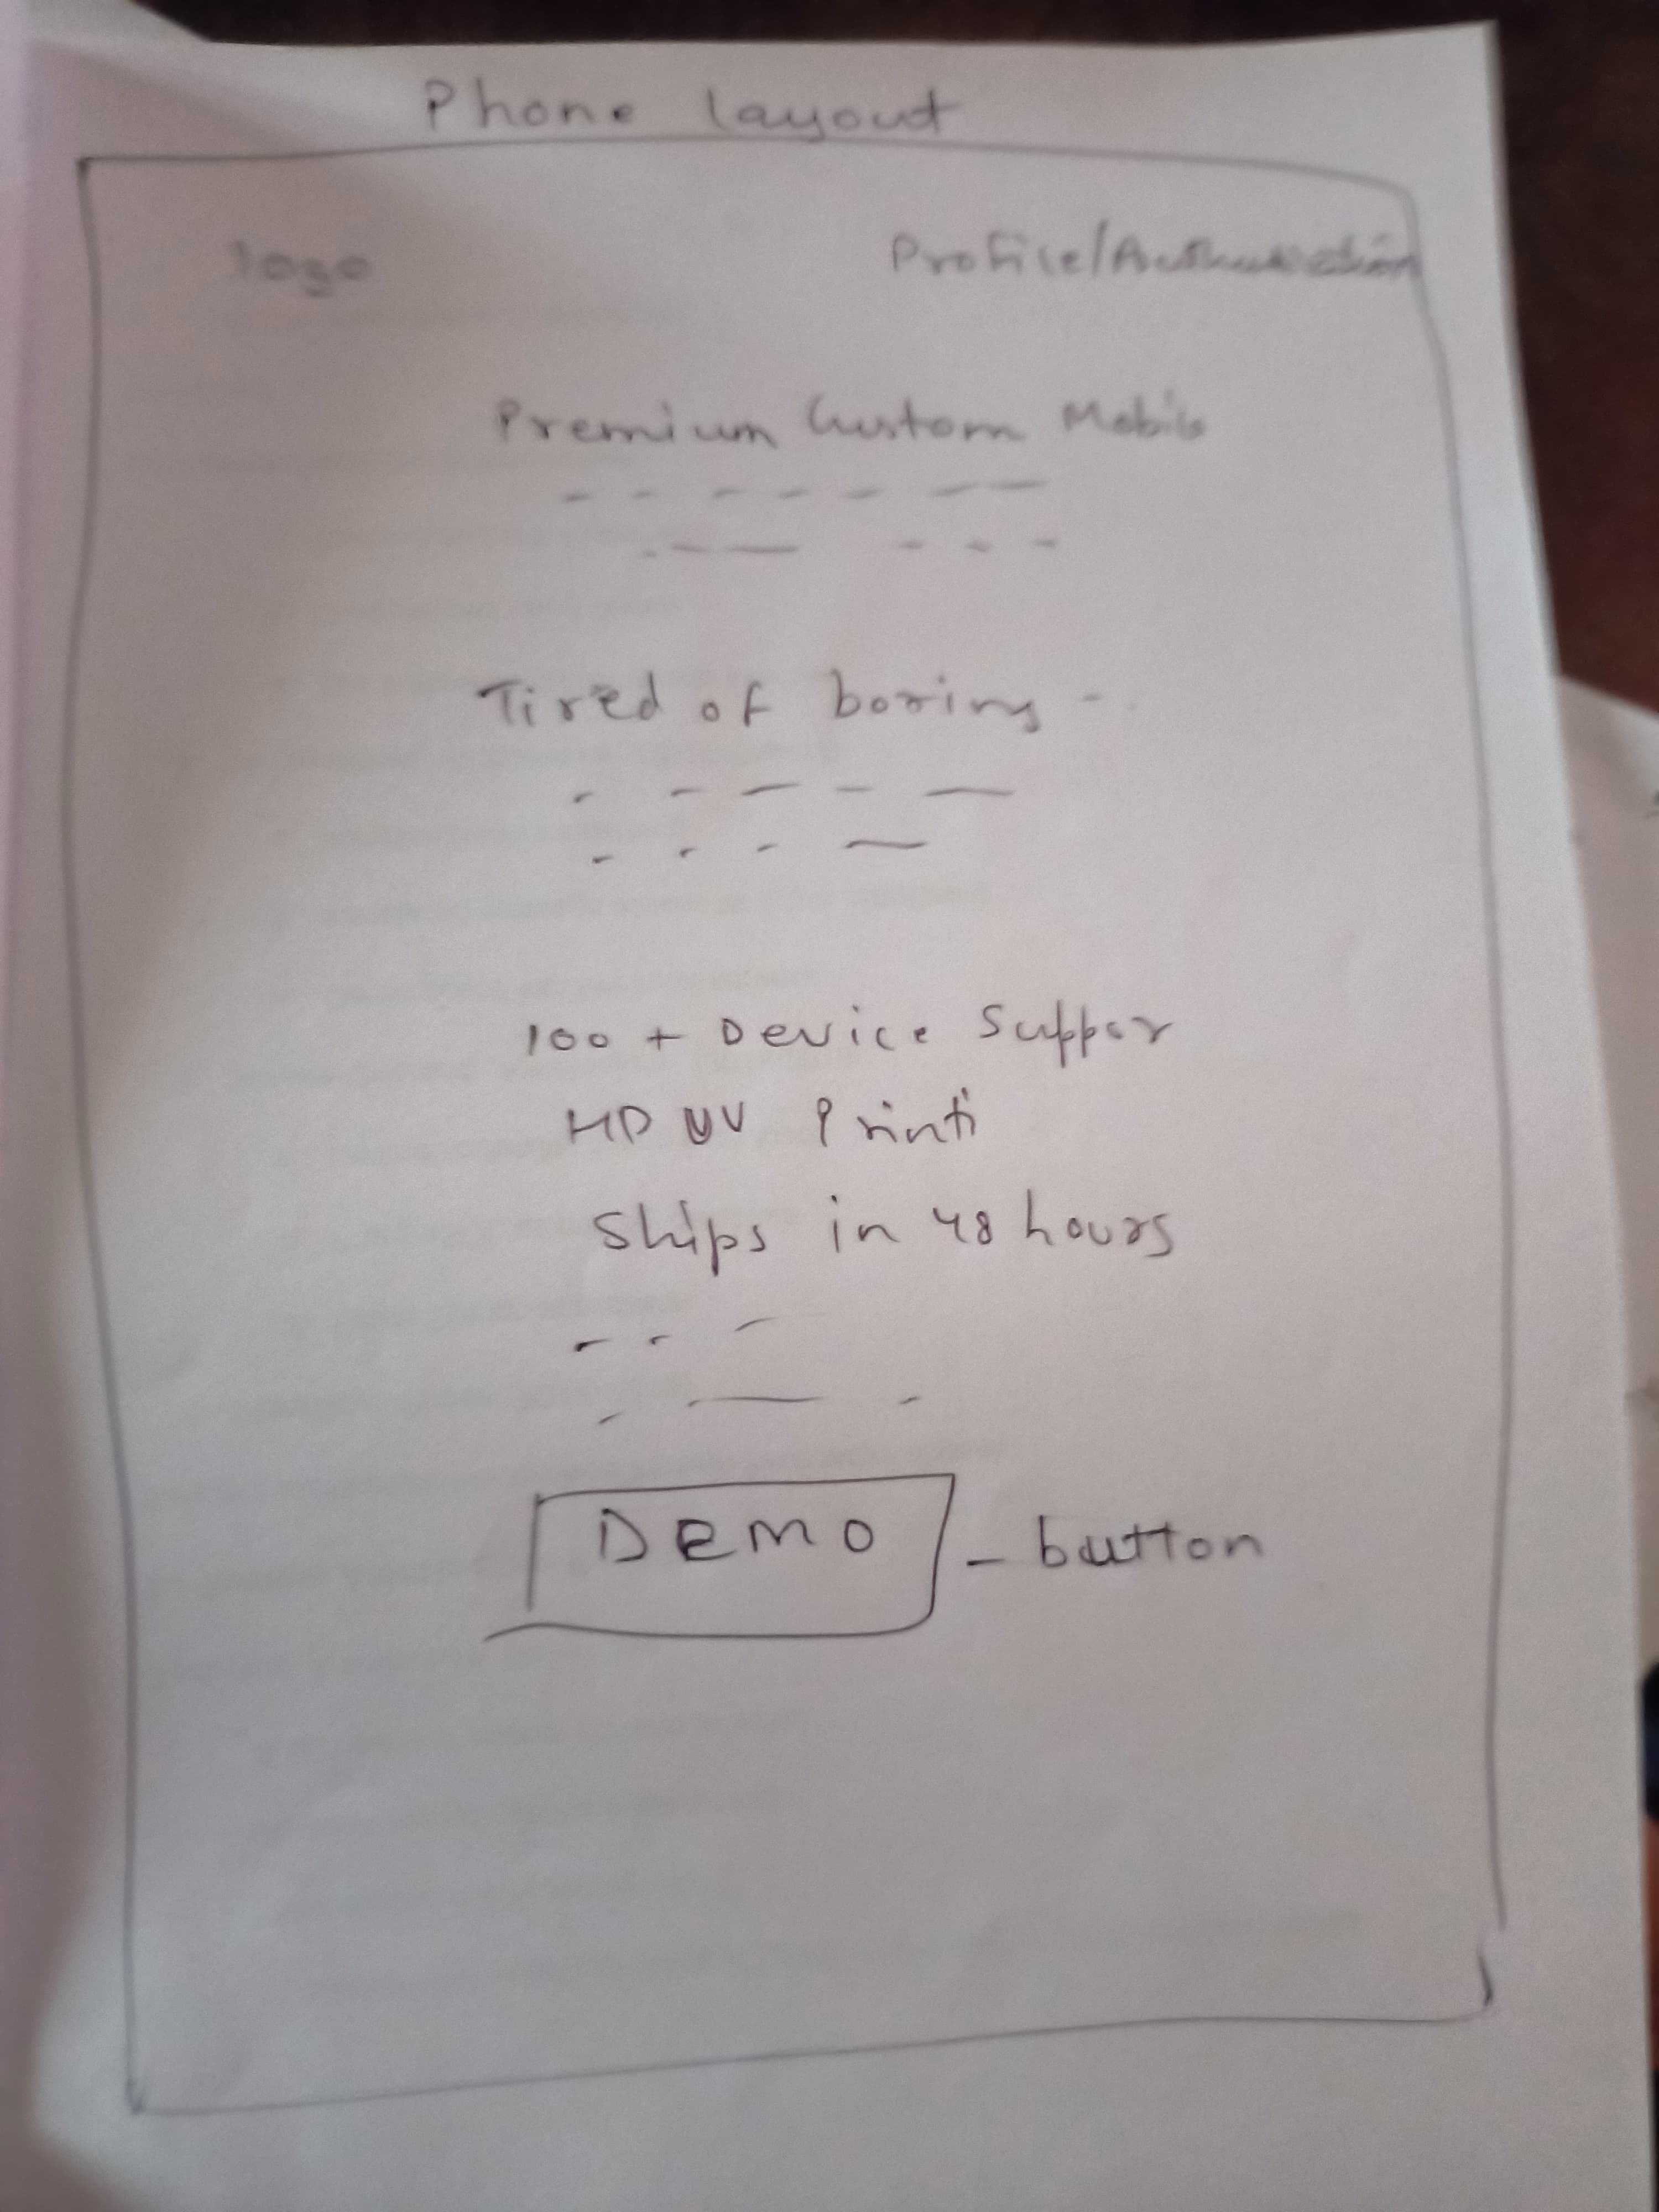 Phone layout
logo
Profile/Authentication
Premium Custom Mobile
Tired of boring -
100 + Device Suppor
HD UV Printi
Ships in 48 hours
DEMO - button